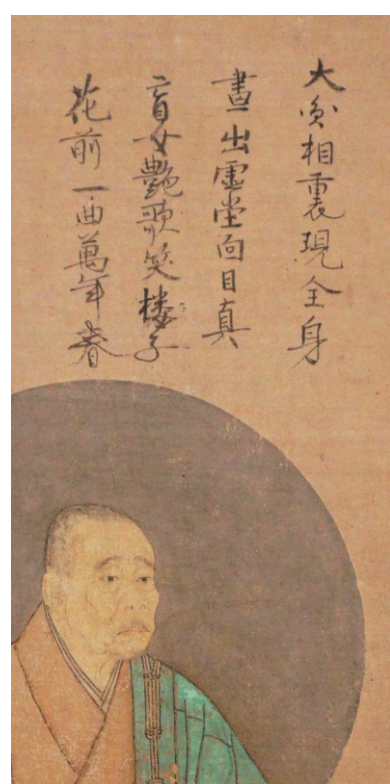 大圓相裏現全身
畫出虚堂面目真
盲女艶歌笑楼子
花前一曲萬年春